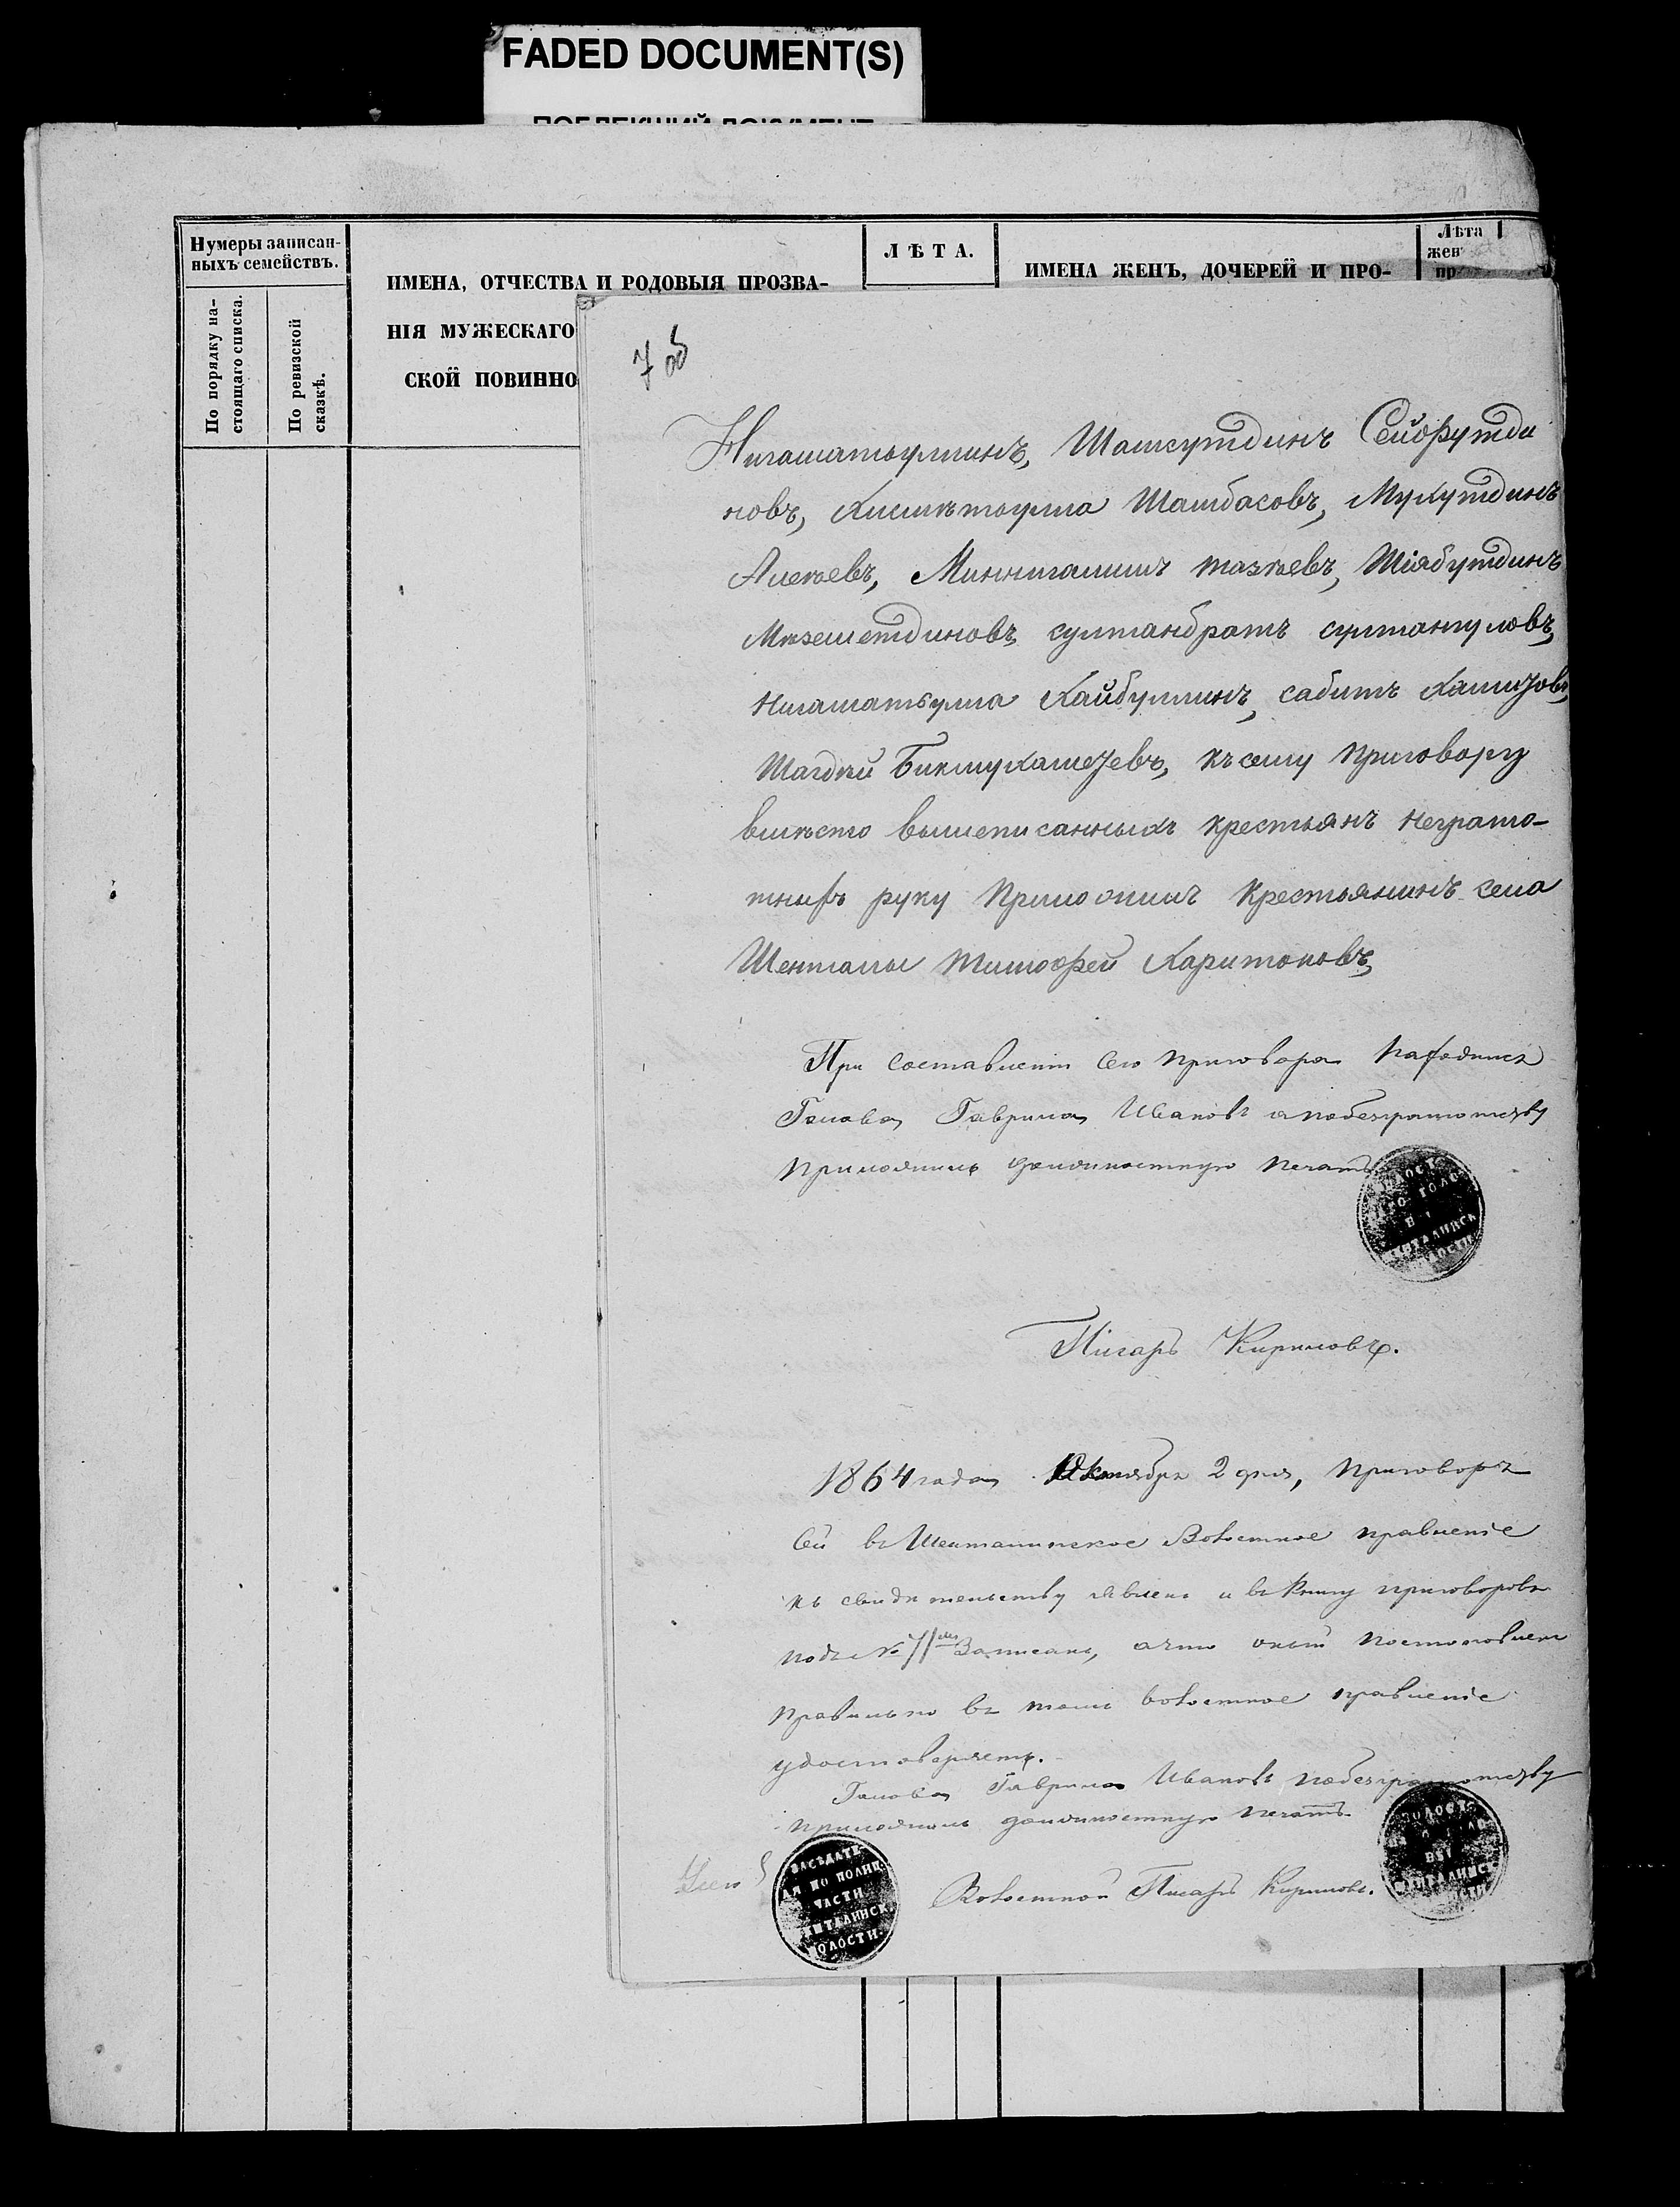 FADED DOCUMENT(S)
Нумеры записан-
ныхъ семействъ.
По порядку на-
стоящаго списка.
По ревизской
сказкѣ.
ИМЕНА, ОТЧЕСТВА И РОДОВЫЯ ПРОЗВА-
НІЯ МУЖЕСКАГО
СКОЙ ПОВИННО
ЛѢТА.
ИМЕНА ЖЕНЪ, ДОЧЕРЕЙ И ПРО-
Лѣта
жен
пр
7 об
Нигаматъуллинъ, Шамсутдинъ Сейфутди
новъ, Хисмѣтъулла Шамбасовъ, Мухутдинъ
Алекѣевъ, Миннигалимъ тазѣевъ, Шіябутдинъ
Мяземетдиновъ султанбратъ султангуловъ,
Нигаматъулла Хайбуллинъ, сабитъ Хамизовъ,
Шагдѣй Бикмухаметевъ, къ сему Приговору
вмѣсто вышеписанныхъ крестьянъ неграмо-
тныхъ руку Приложилъ Крестьянинъ села
Шенталы тимофей Харитоновъ,
При составлении сего приговора находился
Голова Гаврила Ивановъ а по безграмотству
приложилъ должностную печать.
Писарь Кириловъ.
1864 года Октября 2 дня, приговоръ
сей въ Шенталинское Волостное правленіе
къ свидѣтельству явленъ и въ книгу приговоровъ
подъ № 71м Записанъ, а что оный постановленъ
правильно въ томъ волостное правленіе
удостовѣряетъ.
Голова Гаврила Ивановъ по безграмотству
приложилъ должностную печать
Волостной Писарь Кириловъ.
ЗАСѢДАТЕ
ЛЯ ПО ПОЛИЦ.
ЧАСТИ
ШЕНТАЛИНСК
ВОЛОСТИ.